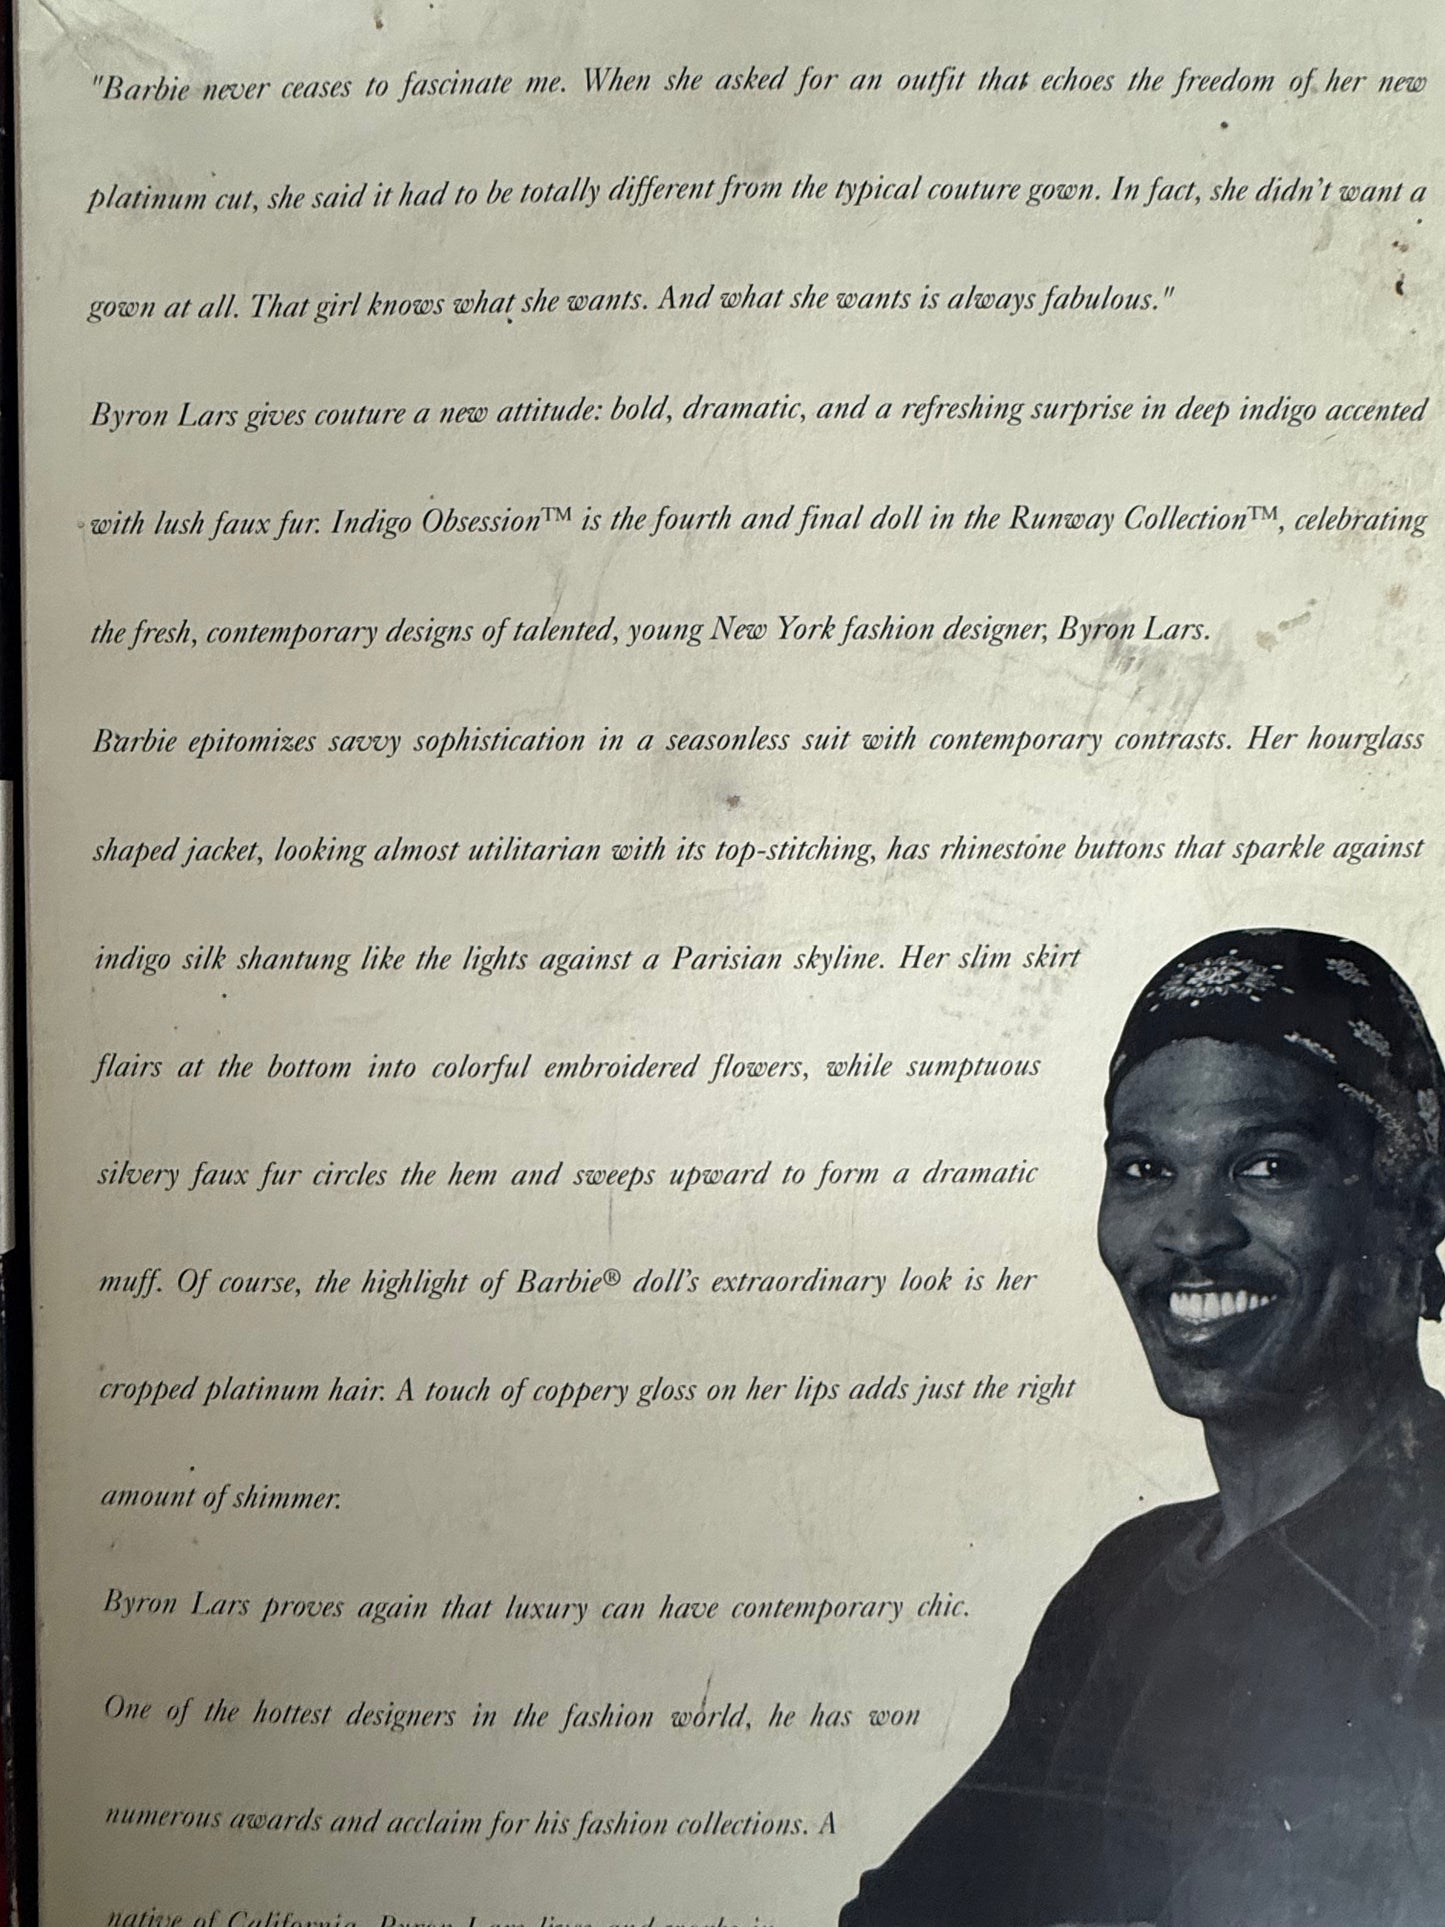 "Barbie never ceases to fascinate me. When she asked for an outfit that echoes the freedom of her new
platinum cut, she said it had to be totally different from the typical couture gown. In fact, she didn't want a
gown at all. That girl knows what she wants. And what she wants is always fabulous."
Byron Lars gives couture a new attitude: bold, dramatic, and a refreshing surprise in deep indigo accented
with lush faux fur. Indigo Obsession™ is the fourth and final doll in the Runway Collection™, celebrating
the fresh, contemporary designs of talented, young New York fashion designer, Byron Lars.
Barbie epitomizes savvy sophistication in a seasonless suit with contemporary contrasts. Her hourglass
shaped jacket, looking almost utilitarian with its top-stitching, has rhinestone buttons that sparkle against
indigo silk shantung like the lights against a Parisian skyline. Her slim skirt
flairs at the bottom into colorful embroidered flowers, while sumptuous
silvery faux fur circles the hem and sweeps upward to form a dramatic
muff. Of course, the highlight of Barbie® doll's extraordinary look is her
cropped platinum hair. A touch of coppery gloss on her lips adds just the right
amount of shimmer.
Byron Lars proves again that luxury can have contemporary chic.
One of the hottest designers in the fashion world, he has won
numerous awards and acclaim for his fashion collections. A
native of California, Byron Lars lives and works in